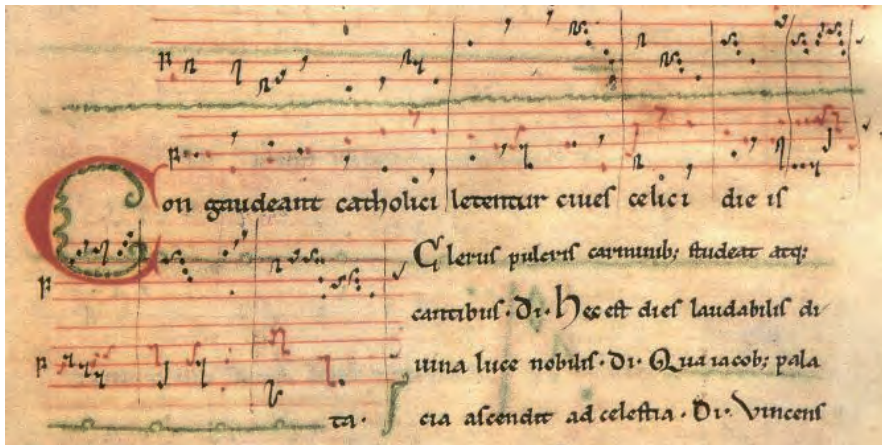 Con gaudeant catholici letentur ciues celici die is
ta.
Clerus pulcris carminib; studeat atq;
cantibus. Di. Hec est dies laudabilis di
uina luce nobilis. Di. Qua iacob; pala
cia ascendit ad celestia. Di. Vincens